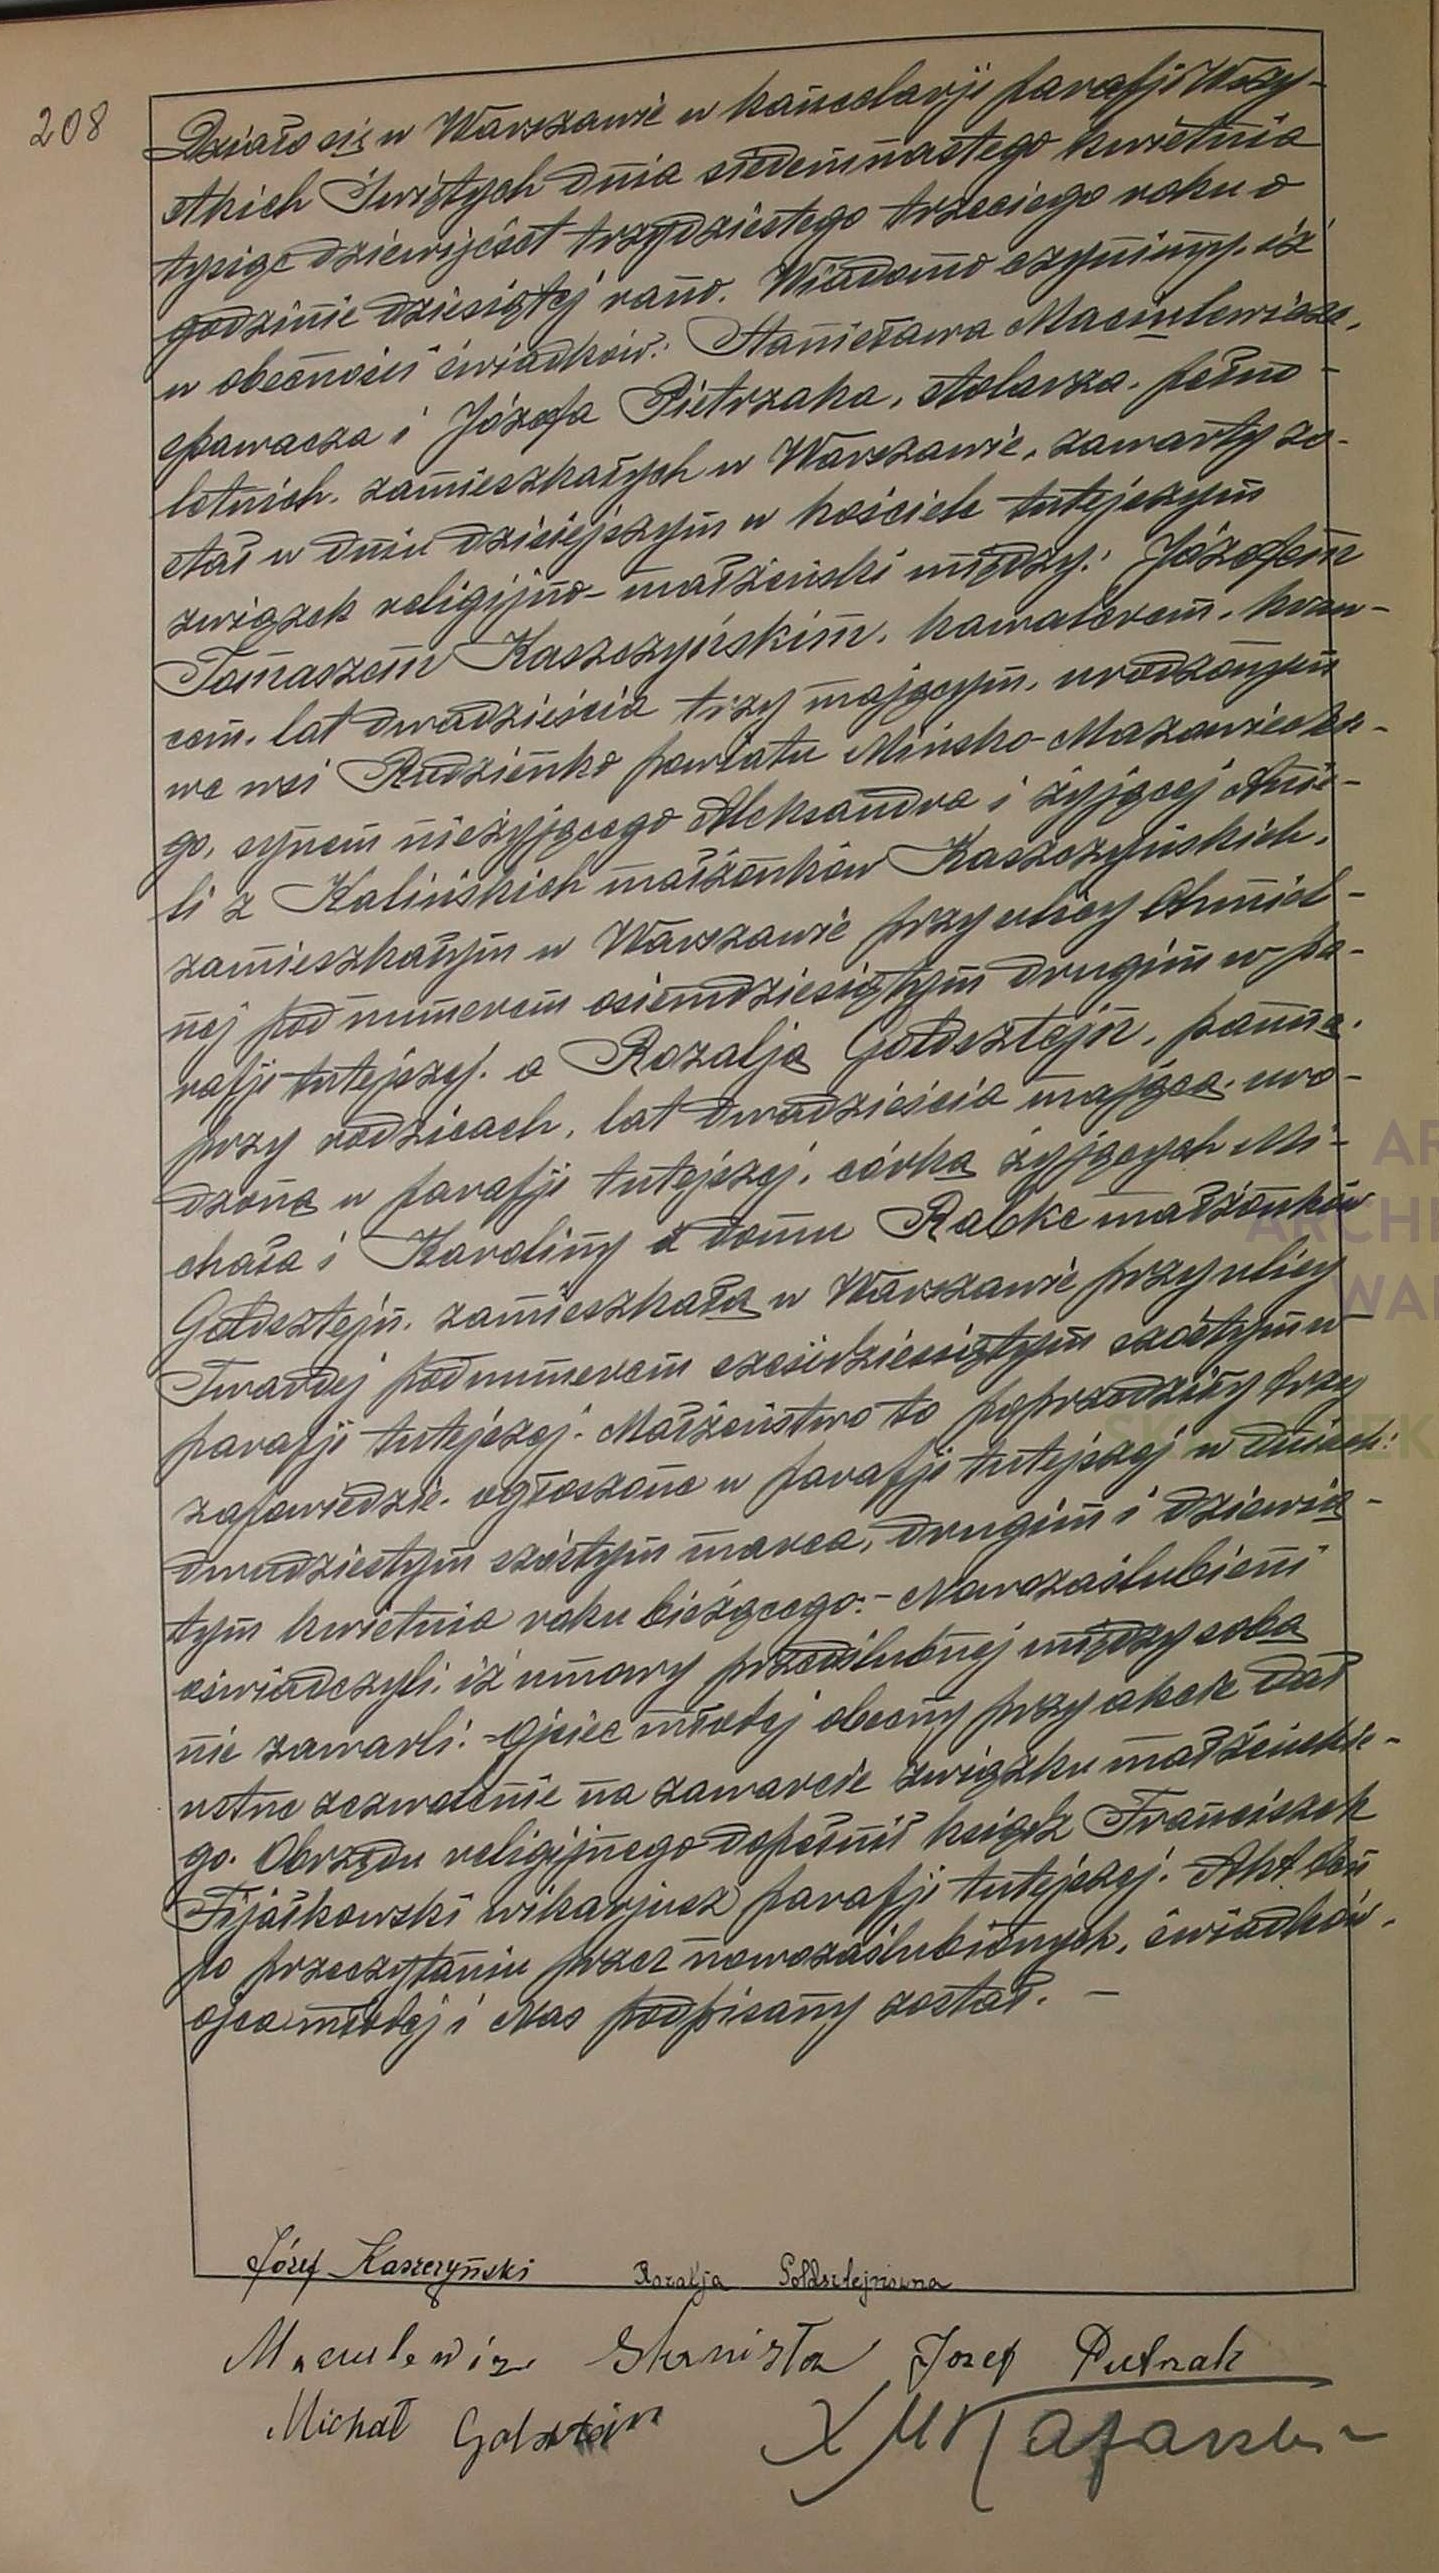 208
Działo się w Warszawie w kancelarji parafji Wszy-
stkich Świętych dnia siedemnastego kwietnia
tysiąc dziewięćset trzydziestego trzeciego roku o
godzinie dziesiątej rano. Wiadomo czynimy, iż
w obecności świadków: Stanisława Maciulewicza,
spawacza i Józefa Pietrzaka, stolarza, pełno-
letnich, zamieszkałych w Warszawie, zawarty zo-
stał w dniu dzisiejszym w kościele tutejszym
związek religijno-małżeński między: Józefem
Tomaszem Kaszczyńskim, kawalerem,
cem, lat dwadzieścia trzy mającym, urodzonym
we wsi Rudzienko powiatu Mińsko-Mazowieckie-
go, synem nieżyjącego Aleksandra i żyjącej Anie-
li z Kalińskich małżonków Kaszczyńskich,
zamieszkałym w Warszawie przy ulicy Chmiel-
nej pod numerem osiemdziesiątym drugim w pa-
rafji tutejszej, a Rozalją Gołdsztejn, panną,
przy rodzicach, lat dwadzieścia mającą, uro-
dzoną w parafji tutejszej, córką żyjących Mi-
chała i Karoliny z domu Rabke małżonków
Gołdsztejn, zamieszkałą w Warszawie przy ulicy
Twardej pod numerem sześćdziesiątym szóstym w
parafji tutejszej. Małżeństwo to poprzedziły trzy
zapowiedzie, ogłoszone w parafji tutejszej w dniach:
dwudziestym szóstym marca, drugim i dziewią-
tym kwietnia roku bieżącego.- Nowozaślubieni
oświadczyli, iż umowy przedślubnej między sobą
nie zawarli. - Ojciec młodej obecny przy akcie dał
ustne zezwolenie na zawarcie związku małżeńskie-
go. Obrzędu religijnego dopełnił ksiądz Franciszek
Fijałkowski wikarjusz parafji tutejszej. Akt ten
po przeczytaniu przez nowozaślubionych, świadków,
ojca młodej i Nas podpisany został. -
Józef Kaszczyński Rozalja Gołdsztejnówna
Maculewiz Stanisła Jozef Pietrzak
Michał
AR
ARCHI
WAR